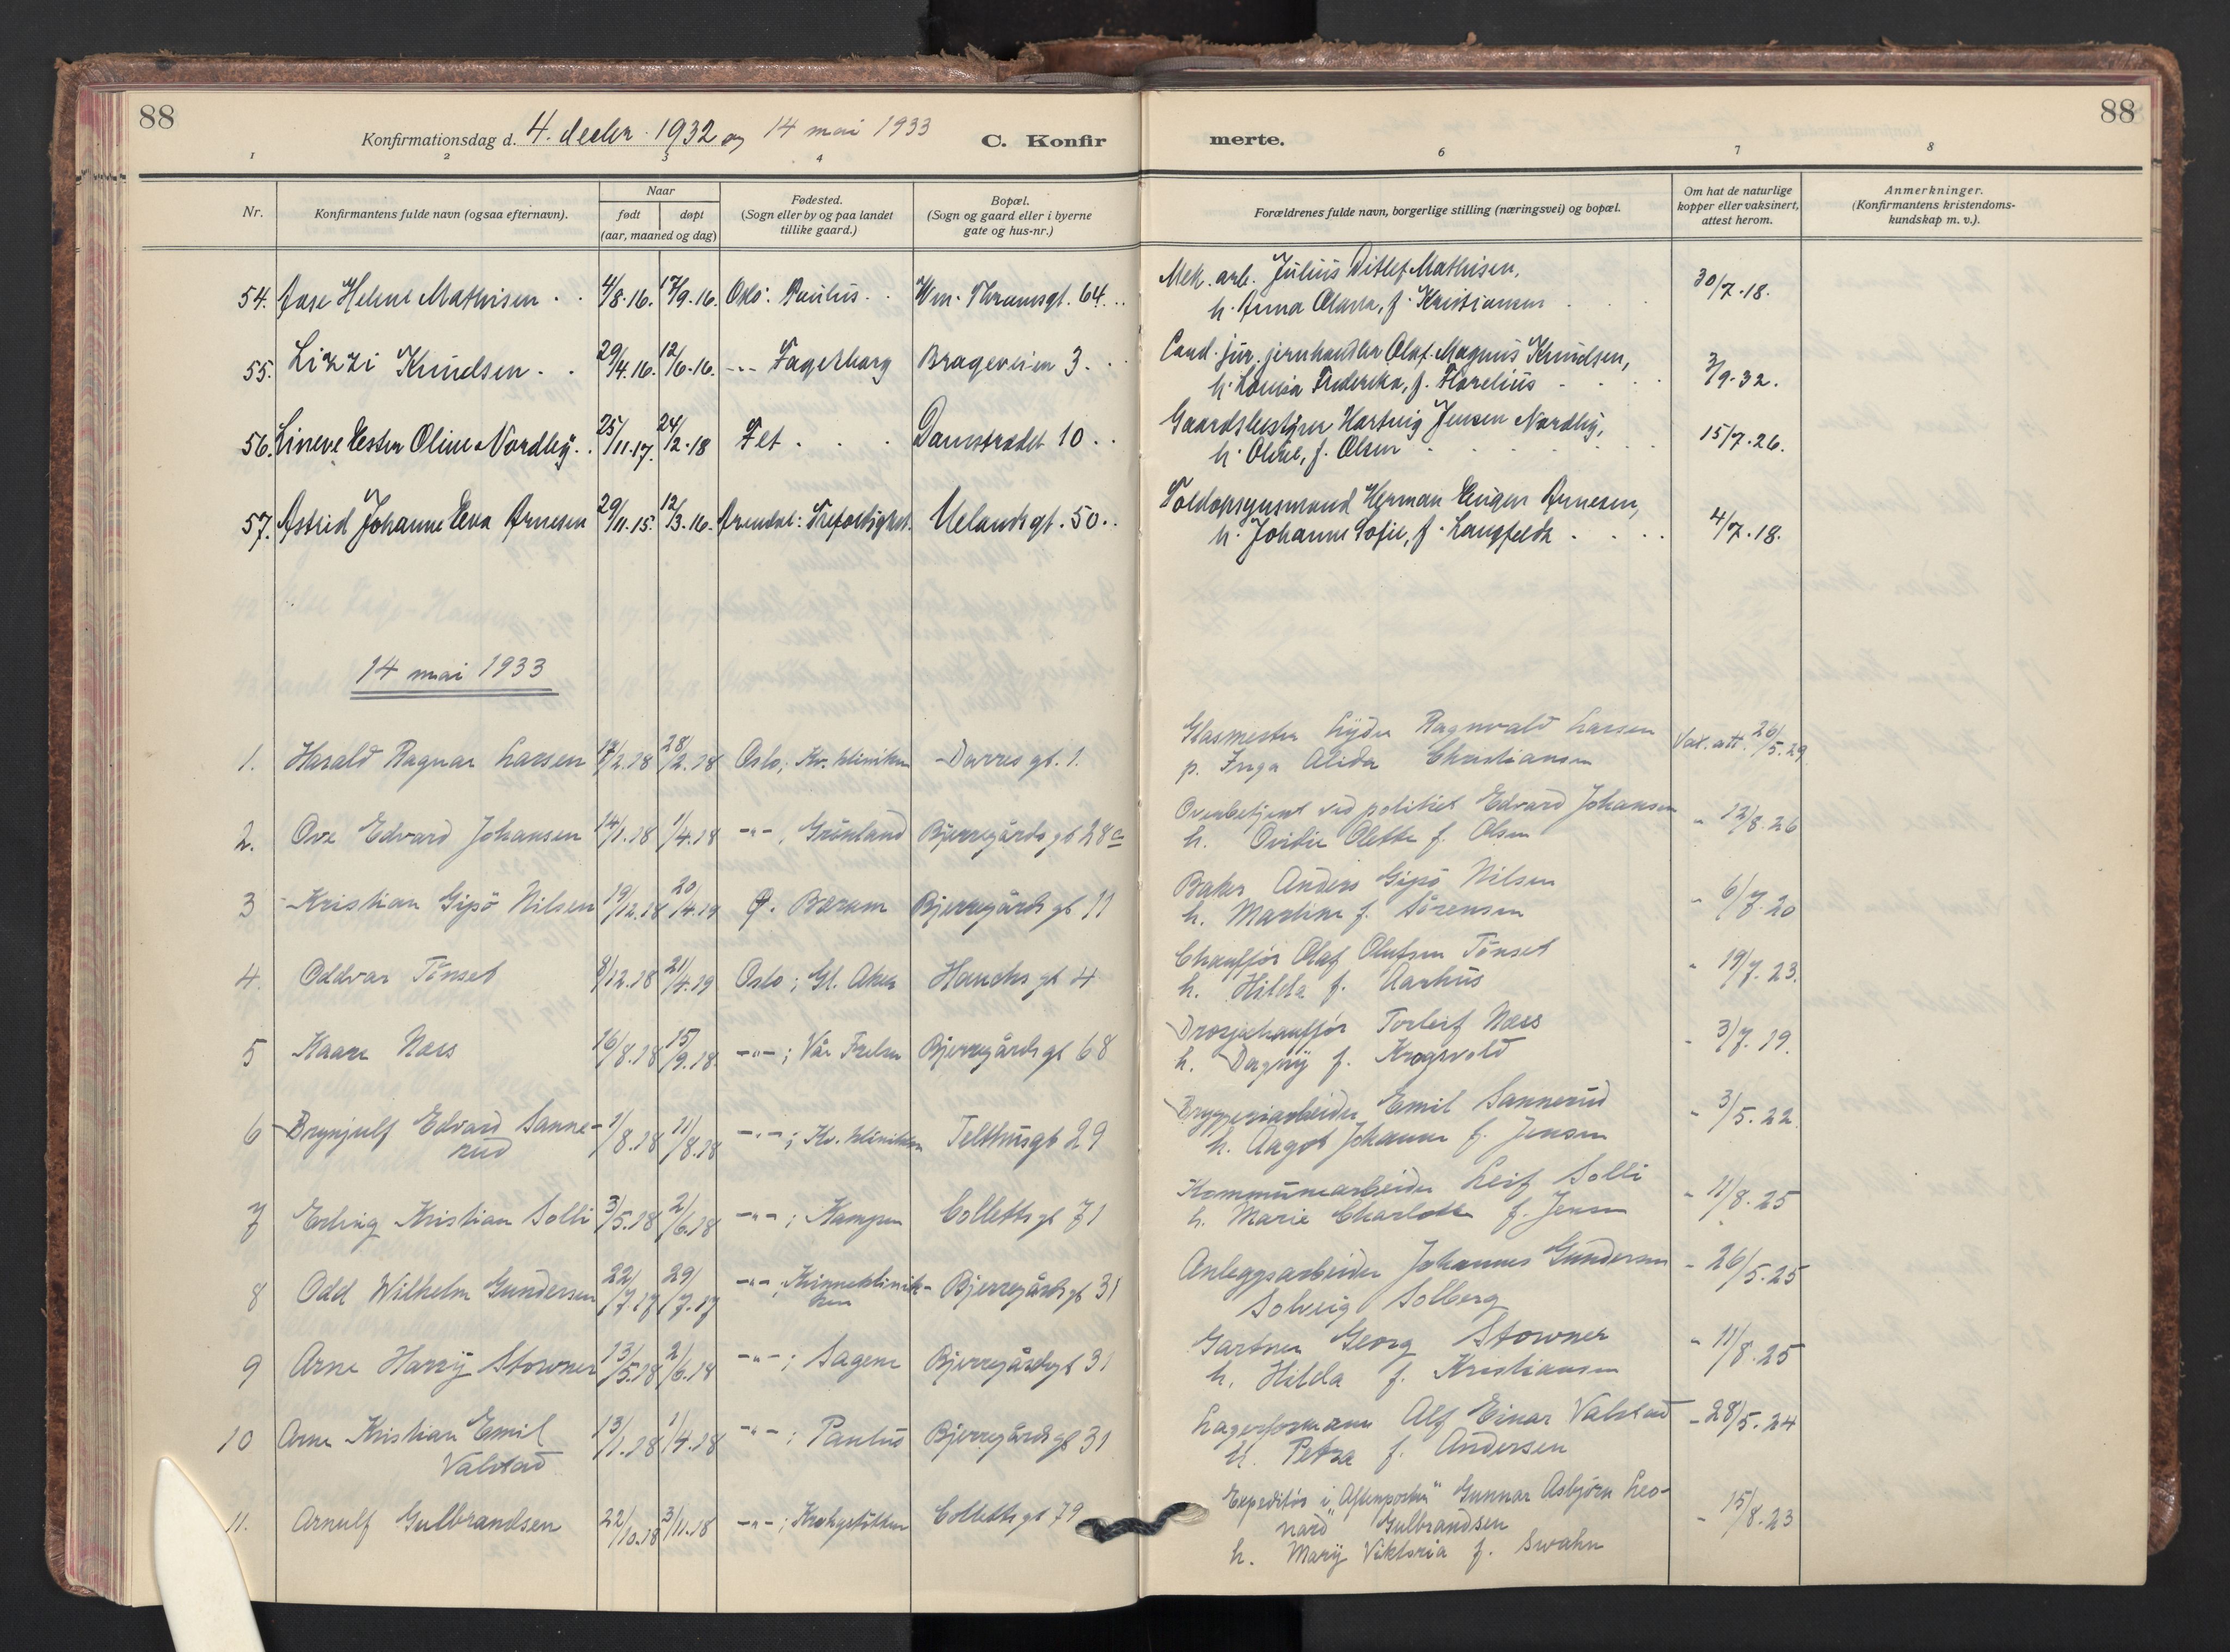 88
Konfirmationsdag d. 4. decbr. 1932 og 14 mai 1933
C. Konfir
merte.
88
1 2 3 4 6 7 8
Nr.
Konfirmantens fulde navn (ogsaa efternavn).
Naar
født døpt
(aar, maaned og dag)
Fødested.
(Sogn eller by og paa landet
tillike gaard.)
Bopæl.
(Sogn og gaard eller i byerne
gate og hus-nr.)
Forældrenes fulde navn, borgerlige stilling (næringsvei) og bopæl.
Om hat de naturlige
kopper eller vaksinert,
attest herom.
Anmerkninger.
(Konfirmantens kristendoms-
kundskap m. v.).
54. Aase Helene Mathisen . . 4/8.16. 17/9.16. Oslo: Paulus . . Wm. Thranesgt. 64 . .
Mek. arb. Julius Ditlef Mathisen,
h. Anna Olava, f. Kristiansen . . . 30/7.18.
55. Lizzi Knudsen . . 29/4.16. 12/6.16. -"- Fagerborg Brageveien 3 . .
Cand. jur. jernhandler Olaf Magnus Knudsen,
h. Lovisa Frederika, f. Florelius . . . 3/9.32.
56. Lineve Ester Oline Nordby . . 25/11.17. 24/2.18 Fet . . . Damstrædet 10 . .
Gaardsbestyrer Hartvig Jensen Nordby,
h. Oline, f. Olsen . . . 15/7.26.
57. Astrid Johanne Eva Arnesen 29/11.15. 12/3.16. Arendal: Trefoldighet. Uelandsgt. 50 . .
Toldopsynsmand Herman Eugen Arnesen,
h. Johanne Sofie, f. Langfeldt . . . 4/7.18.
14 mai 1933
1. Harald Ragnar Larsen 17/2.18 28/2.18 Oslo; Kv. kliniken Darresgt. 1.
Glasmester Lyder Ragnvald Larsen
p. Inga Alida Christiansen Vax. att. 26/5.29
2. Ove Edvard Johansen 14/1.18 1/4.18 -"-, Grønland Bjerregårdsgt 28 c
Overbetjent ved politiet Edvard Johansen
h. Ovidie Olette f. Olsen " 12/8.26
3 Kristian Gipö Nilsen 19/12.18 20/4.19 Ø. Bærum Bjerregårdsgt 11
Baker Anders Gipö Nilsen
h. Martine f. Sörensen " 6/7.20
4. Oddvar Tönset 8/12.18 21/4.19 Oslo; Gl. Aker Hauchsgt 4
Chaufför Olaf Olufsen Tönset
h. Hilda f. Aarhus " 19/7.23.
5 Kaare Næss 16/8.18 15/9.18. -"-; Vår Frelser Bjerregårdsgt 68
Drosjechauffør Torleif Næss
h. Dagny f. Krogsvold " 3/7.19.
6 Brynjulf Edvard Sanne-
rud 1/8.18 11/8.18 -"-; Kv. kliniken Telthusgt 29
Bryggeriarbeider Emil Sannerud
h. Aagot Johanne f. Jensen " 3/5.22
7 Erling Kristian Solli 3/5.18 2/6.18 -"-; Kampen Collettsgt 71
Kommunearbeider Leif Solli
h. Marie Charlotte f. Jensen " 11/8.25
8 Odd Wilhelm Gundersen 22/7.17 29/7.17 -"-; Kvinneklinik-
ken Bjerregårdsgt 31
Anleggsarbeider Johannes Gundersen
Solveig Solberg " 26/5.25
9 Arne Harry Stowner 13/5.18 2/6.18 -"-; Sagene Bjerregårdsgt 31
Gartner Georg Stowner
h. Hilda f. Kristiansen " 11/8.25
10 Arne Kristian Emil
Valstad 13/1.18 1/4.18 -"-; Paulus Bjerregårdsgt 31
Lagerformann Alf Einar Valstad
h. Petra f. Andersen " 28/5.24
11. Arnulf Gulbrandsen 22/10.18 3/11.18 -"-; Krohgstötten Collettsgt 79
Expeditör i "Aftenposten" Gunnar Asbjörn Leo-
nard Gulbrandsen
h. Mary Viktoria f. Swahn " 15/8.23